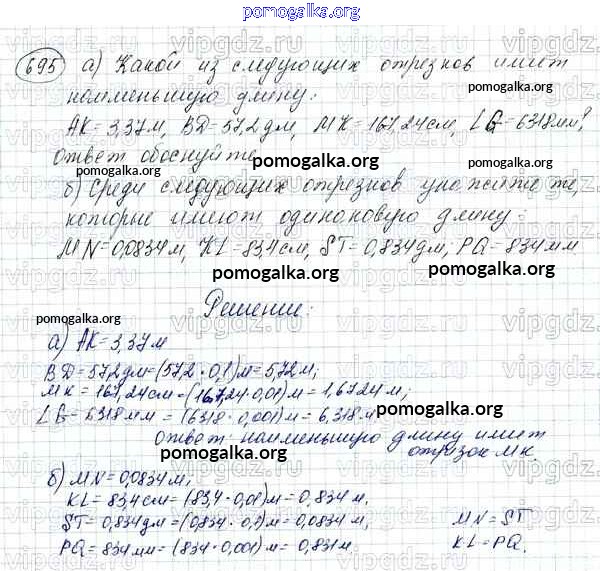 pomogalka.org
695 а) Какой из следующих отрезков имеет
наименьшую длину:
AK = 3,37м, BD = 57,2 дм, MK = 167,24 см, LG = 6318 мм?
ответ обоснуйте
pomogalka.org
б) Среди следующих отрезков укажите те,
которые имеют одинаковую длину:
MN = 0,0834 м, KL = 83,4 см, ST = 0,834 дм, PQ = 834 мм
pomogalka.org
pomogalka.org
Решение:
pomogalka.org
а) AK = 3,37 м
BD = 57,2 дм = (57,2 · 0,1) м = 5,72 м;
MK = 167,24 см = (167,24 · 0,01) м = 1,6724 м;
LG = 6318 мм = (6318 · 0,001) м = 6,318 м
pomogalka.org
ответ наименьшую длину имеет
отрезок MK.
б) MN = 0,0834 м;
KL = 83,4 см = (83,4 · 0,01) м = 0,834 м,
ST = 0,834 дм = (0,834 · 0,1) м = 0,0834 м, MN = ST
PQ = 834 мм = (834 · 0,001) м = 0,834 м. KL = PQ.
pomogalka.org